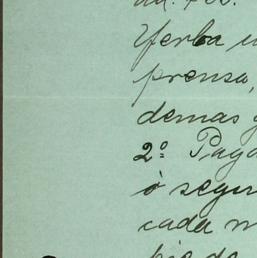 Yerba
prensa,
demas
2º Pag
ò segu
cada